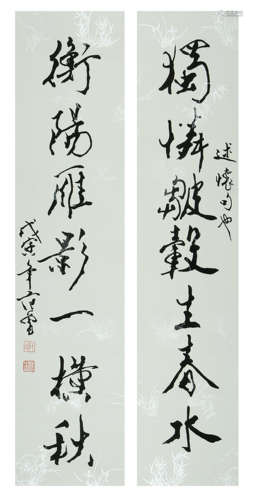 獨憐皺縠生春水
述懷句也
衡陽雁影一橫秋
戊寅年